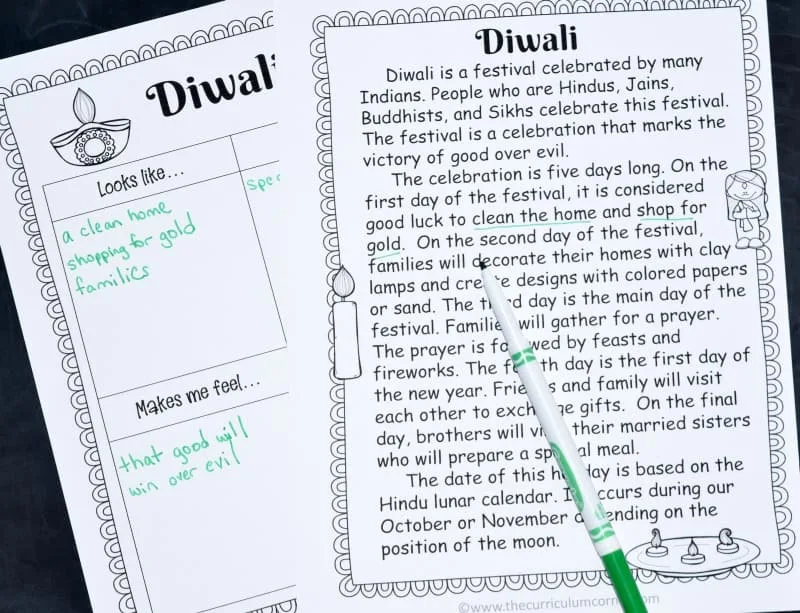 Diwali
Looks like...
a clean home
shopping for gold
families
spec
Makes me feel...
that good will
win over evil
Diwali
Diwali is a festival celebrated by many
Indians. People who are Hindus, Jains,
Buddhists, and Sikhs celebrate this festival.
The festival is a celebration that marks the
victory of good over evil.
The celebration is five days long. On the
first day of the festival, it is considered
good luck to clean the home and shop for
gold. On the second day of the festival,
families will decorate their homes with clay
lamps and create designs with colored papers
or sand. The third day is the main day of the
festival. Families will gather for a prayer.
The prayer is followed by feasts and
fireworks. The fourth day is the first day of
the new year. Friends and family will visit
each other to exchange gifts. On the final
day, brothers will visit their married sisters
who will prepare a special meal.
The date of this holiday is based on the
Hindu lunar calendar. It occurs during our
October or November depending on the
position of the moon.
©www.thecurriculumcorner.com